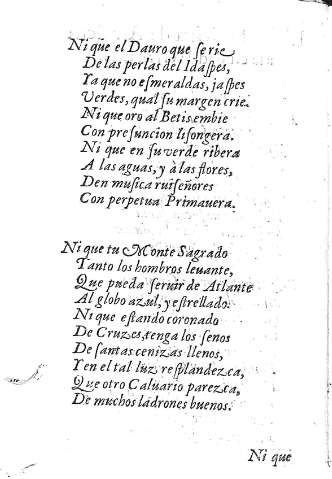 Ni que el Dauro que se rie
De las perlas del Idaſpes,
Ya que no eſmeraldas, jaſpes
Verdes, qual ſu margen crie.
Ni que oro al Betis embie
Con preſuncion liſongera.
Ni que en ſu verde ribera
A las aguas, y à las flores,
Den muſica ruiſeñores
Con perpetua Primauera.
Ni que tu Monte Sagrado
Tanto los hombros leuante,
Que pueda ſeruir de Atlante
Al globo azul, y eſtrellado.
Ni que eſtando coronado
De Cruzes, tenga los ſenos
De ſantas cenizas llenos,
Y en el tal luz reſplandezca,
Que otro Caluario parezca,
De muchos ladrones buenos.
Ni que